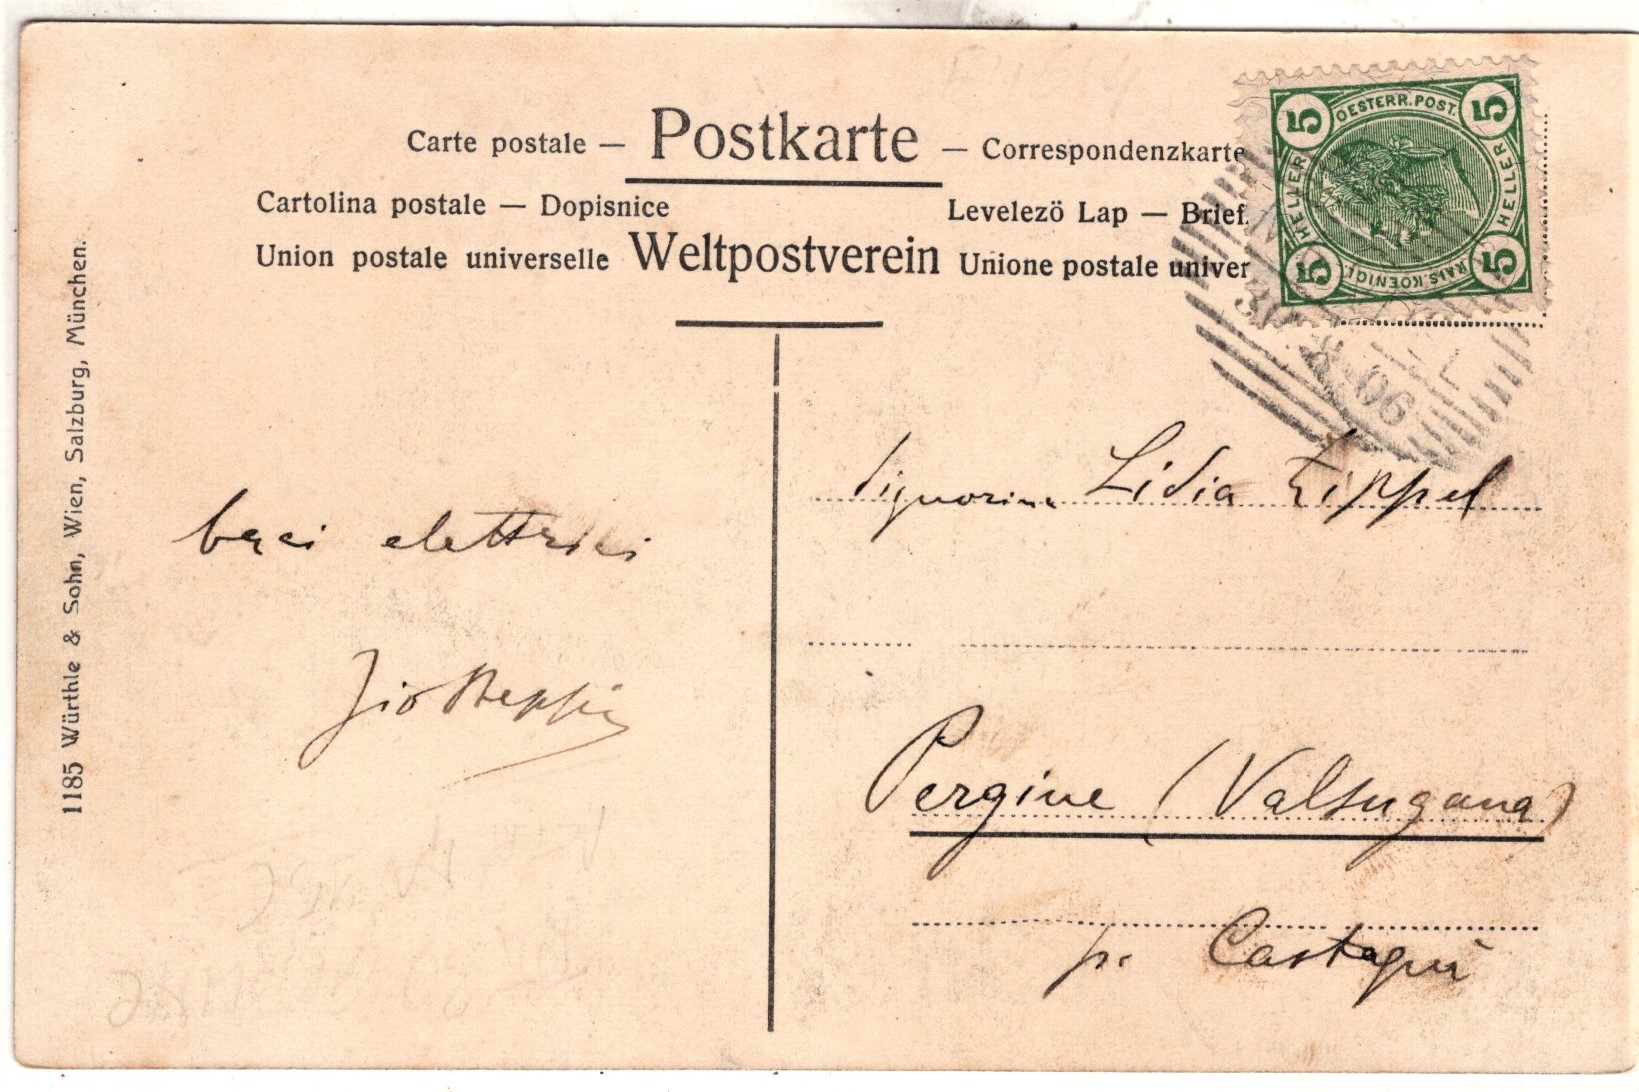 Carte postale — Postkarte — Correspondenzkarte
Cartolina postale — Dopisnice
Levelezö Lap — Brief.
Union postale universelle Weltpostverein Unione postale univer
5 OESTERR. POST. 5
HELLER HELLER
5 KAIS. KOENIGL. 5
06
1185 Würthle & Sohn, Wien, Salzburg, München.
baci elettrici
Zio Beppin
Signorina Lidia Zippel
Pergine (Valsugana)
pr. Castagnè